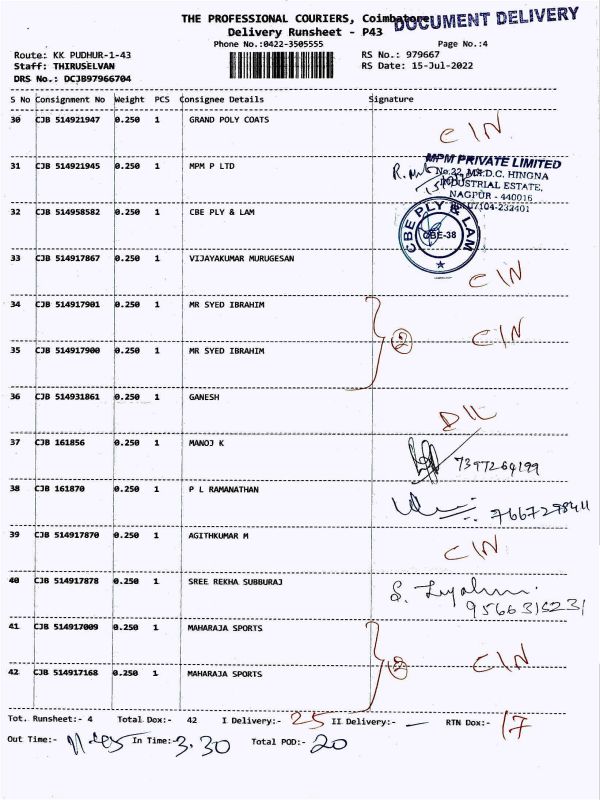 THE PROFESSIONAL COURIERS, Coimbatore
DOCUMENT DELIVERY
Delivery Runsheet - P43
Phone No.:0422-3505555
Page No.:4
Route: KK PUDHUR-1-43
RS No.: 979667
Staff: THIRUSELVAN
RS Date: 15-Jul-2022
DRS No.: DCJB97966704
S No Consignment No Weight PCS Consignee Details Signature
30 CJB 514921947 0.250 1 GRAND POLY COATS CIN
31 CJB 514921945 0.250 1 MPM P LTD
MPM PRIVATE LIMITED
No.22, M.I.D.C. HINGNA
INDUSTRIAL ESTATE,
NAGPUR - 440016
07104-232401
32 CJB 514958582 0.250 1 CBE PLY & LAM
CBE PLY & LAM
CBE-38
33 CJB 514917867 0.250 1 VIJAYAKUMAR MURUGESAN CIN
34 CJB 514917901 0.250 1 MR SYED IBRAHIM
2 CIN
35 CJB 514917900 0.250 1 MR SYED IBRAHIM
36 CJB 514931861 0.250 GANESH D/L
37 CJB 161856 0.250 1 MANOJ K
38 CJB 161870 0.250 1 P L RAMANATHAN
39 CJB 514917870 0.250 1 AGITHKUMAR M CIN
40 CJB 514917878 0.250 1 SREE REKHA SUBBURAJ
41 CJB 514917009 0.250 1 MAHARAJA SPORTS
2 CIN
42 CJB 514917168 0.250 1 MAHARAJA SPORTS
Tot. Runsheet:- 4 Total Dox:- 42 I Delivery:- 25 II Delivery:- — RTN Dox:- 17
Out Time:- In Time:- 3.30 Total POD:- 20